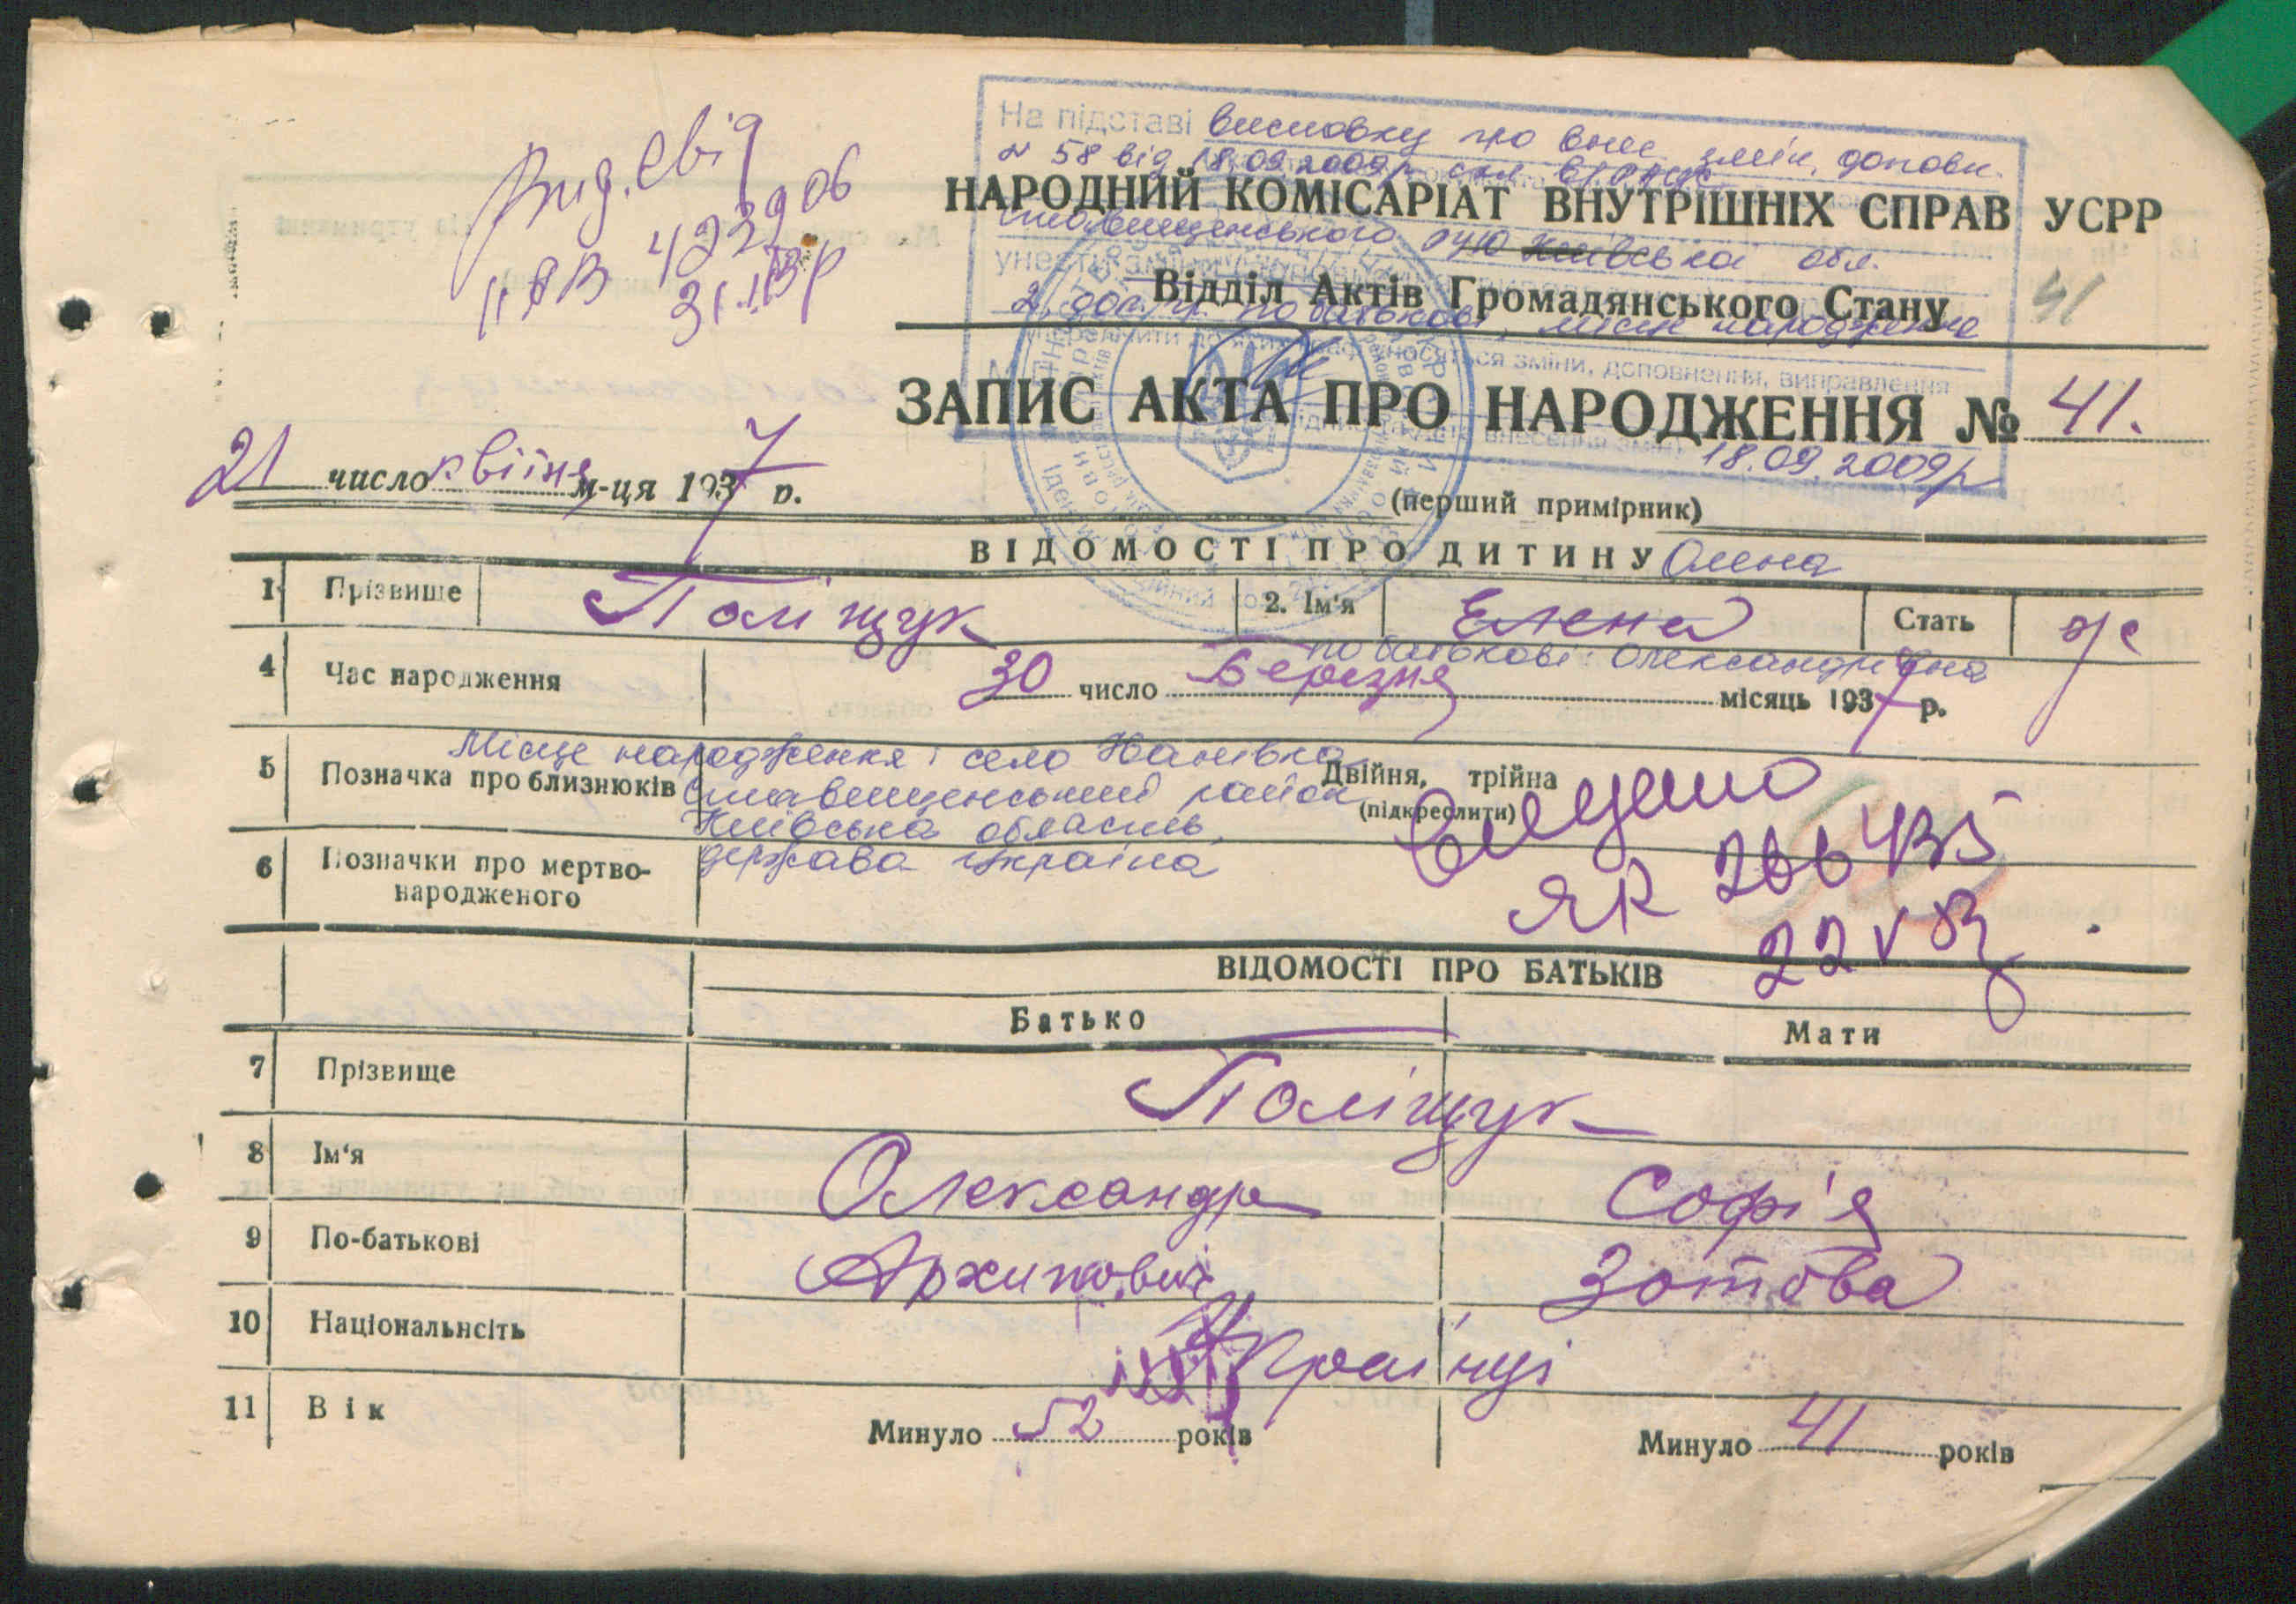 Вид. свід
II ЯВ 422906
31.
На підставі висновку про внес. змін, доповн.
№ 58 від 18.09.2009р. скл.
НАРОДНИЙ КОМІСАРІАТ ВНУТРІШНІХ СПРАВ УСРР
Ставищенського Київська обл.
Відділ Актів Громадянського Стану
41
2, доп. гр. по батькові, місце народження
зміни, доповнення, виправлення
ЗАПИС АКТА ПРО НАРОДЖЕННЯ № 41.
18.09.2009р
21 число квітня м-ця 1937 р.
(перший примірник)
ВІДОМОСТІ ПРО ДИТИНУ Олена
1 Прізвище Поліщук 2. Ім'я Елена Стать ж
по батькові: Олександрівна
4 Час народження 30 число Березня місяць 1937 р.
Місце народження: село
5 Позначка про близнюків Ставищенський район Двійня, трійна
(підкреслити)
Київська область,
6 Позначки про мертво-
народженого
держава Україна
ЯК 266435
22 V
ВІДОМОСТІ ПРО БАТЬКІВ
Батько Мати
7 Прізвище Поліщук
8 Ім'я Олександр Софія
9 По-батькові Архипович Зотова
10 Національнсіть Українці
11 Вік Минуло 52 років Минуло 41 років